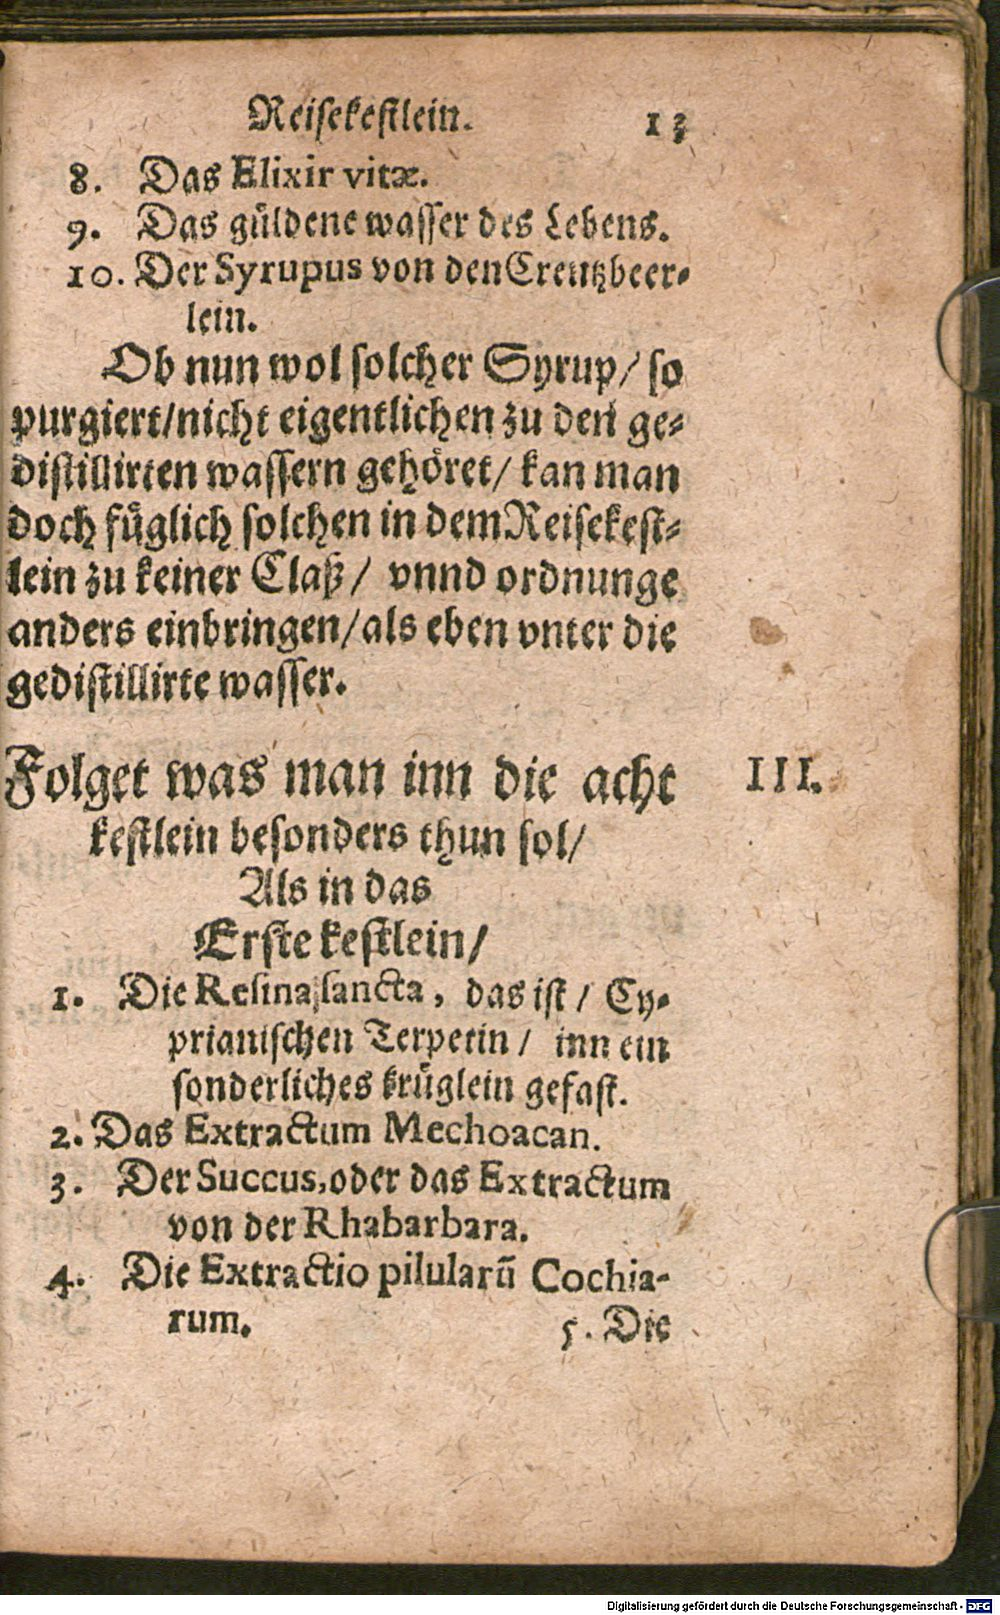 Reisekestlein. 13
8. Das Elixir vitæ.
9. Das güldene wasser des Lebens.
10. Der Syrupus von den Creutzbeer-
lein.
Ob nun wol solcher Syrup/ so
purgiert/nicht eigentlichen zu den ge-
distillirten wassern gehöret/ kan man
doch füglich solchen in dem Reisekest-
lein zu keiner Claß/ vnnd ordnunge
anders einbringen/als eben vnter die
gedistillirte wasser.
Folget was man inn die acht III.
kestlein besonders thun sol/
Als in das
Erste kestlein/
1. Die Resina sancta, das ist/ Cy-
prianischen Terpetin/ inn ein
sonderliches krüglein gefast.
2. Das Extractum Mechoacan.
3. Der Succus, oder das Extractum
von der Rhabarbara.
4. Die Extractio pilularū Cochia-
rum.
5. Die
Digitalisierung gefördert durch die Deutsche Forschungsgemeinschaft - DFG